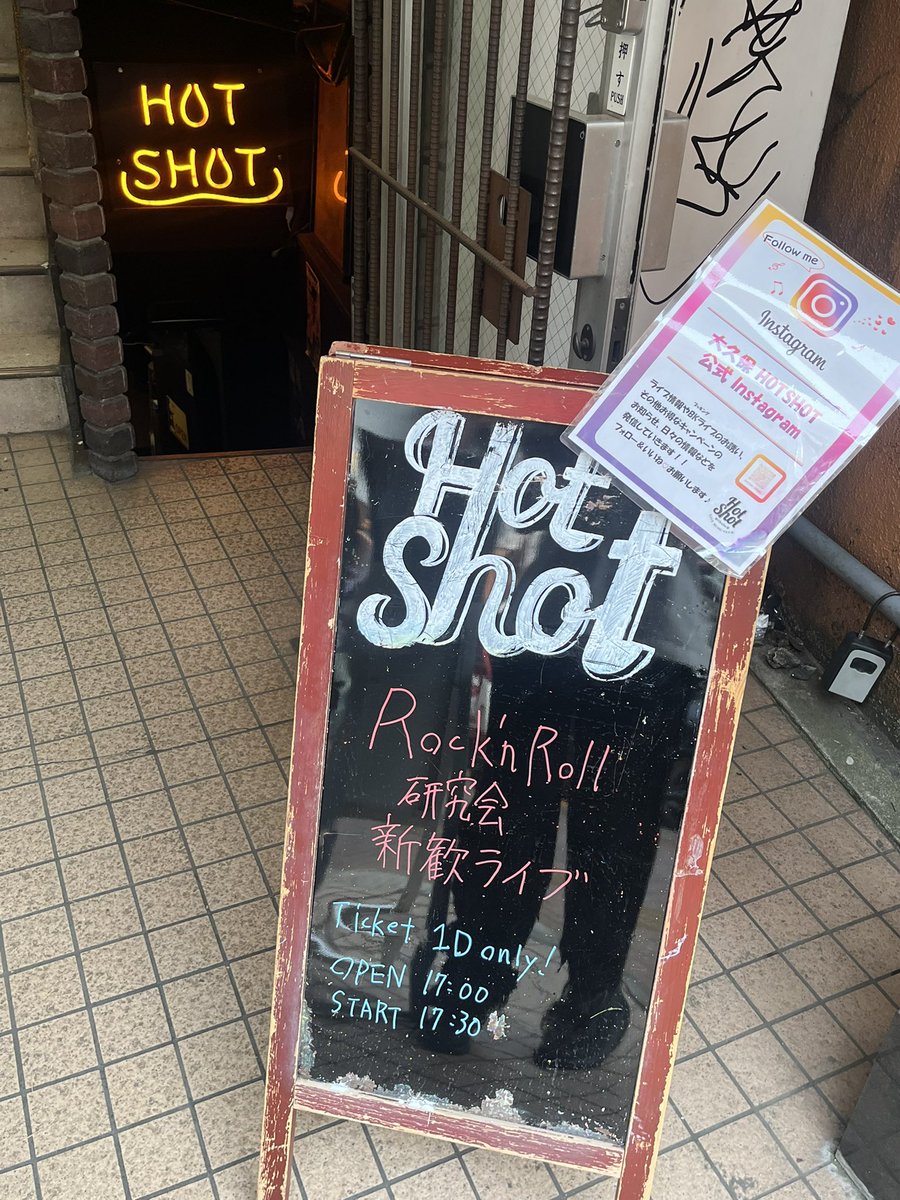 HOT
SHOT
押す
PUSH
Follow me
Instagram
大久保 HOTSHOT
公式 Instagram
ブッキング
ライブ情報やBKライブのお誘い、
その他お得なキャンペーンの
お知らせ、日々の情報などを
発信していきます！！
フォロー&いいね♥お願いします♪
Hot
Shot
Hot
Shot
Rock'n Roll
研究会
新歓ライブ
Ticket 1D only!
OPEN 17:00
START 17:30